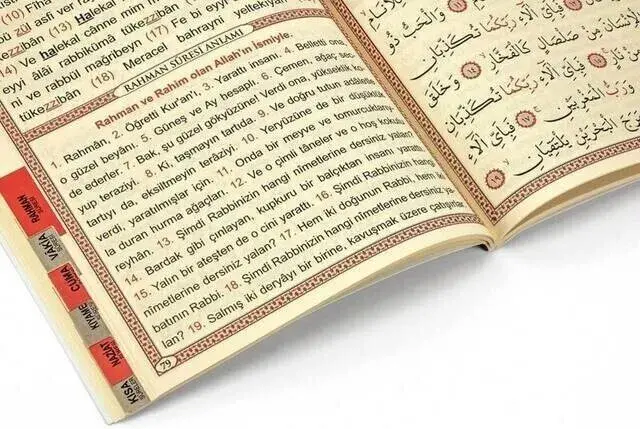 (10) Fiha
zül asfi ver
(13) Halekal
(14) Ve halekal cânne mim
tükezzibân (16)
eyyi âlâi rabbikümâ tükezzibân (17) Fe bi eyyi
ni ve rabbül mağribeyn (17)
tükezzibân (18) Meracel bahrayni yeltekıyan
RAHMAN SÛRESİ ANLAMI
Rahman ve Rahim olan Allah'ın ismiyle.
1. Rahmân, 2. Öğretti Kur'an'ı, 3. Yarattı insanı. 4. Belletti ona,
o güzel beyânı. 5. Güneş ve Ay hesaplı. 6. Çemen, ağaç sec-
de ederler. 7. Bak, şu güzel gökyüzüne! Verdi ona, yükseklik ko-
yup teraziyi. 8. Ki, taşmayın tartıda. 9. Ve doğru tutun adâletle
tartıyı da, eksiltmeyin terâziyi. 10. Yeryüzüne de bir düşüklük
verdi, yaratılmışlar için; 11. Onda bir meyve ve tomurcuklany-
la duran hurma ağaçları. 12. Ve o çimli tâneler ve o hoş kokulu
reyhân. 13. Şimdi Rabbinizin hangi nîmetlerine dersiniz yalan?
14. Bardak gibi çınlayan, kupkuru bir balçıktan insanı yarattı.
15. Yalın bir ateşten de o cini yarattı. 16. Şimdi Rabbinizin hangi
nîmetlerine dersiniz yalan? 17. Hem iki doğunun Rabbi, hem iki
batının Rabbi. 18. Şimdi Rabbinizin hangi nîmetlerine dersiniz ya-
lan? 19. Salmış iki deryâyı bir birine, kavuşmak üzere çatışırlar.
79
RAHMAN SÛRESİ
VAKIA SÛRESİ
CUMA SÛRESİ
KIYAME SÛRESİ
NAZİAT SÛRESİ
KISA SÛRELER
وَالْحَبُّ ذُو
فَبِاَيِّ اٰلَٓاءِ رَبِّكُمَا تُكَذِّبَانِ
مِنْ صَلْصَالٍ كَالْفَخَّارِ ۙ وَخَلَقَ
فَبِاَيِّ اٰلَٓاءِ رَبِّكُمَا تُكَذِّبَانِ
وَرَبُّ الْمَغْرِبَيْنِ ۚ فَبِاَيِّ اٰلَٓاءِ
الْبَحْرَيْنِ يَلْتَقِيَانِ